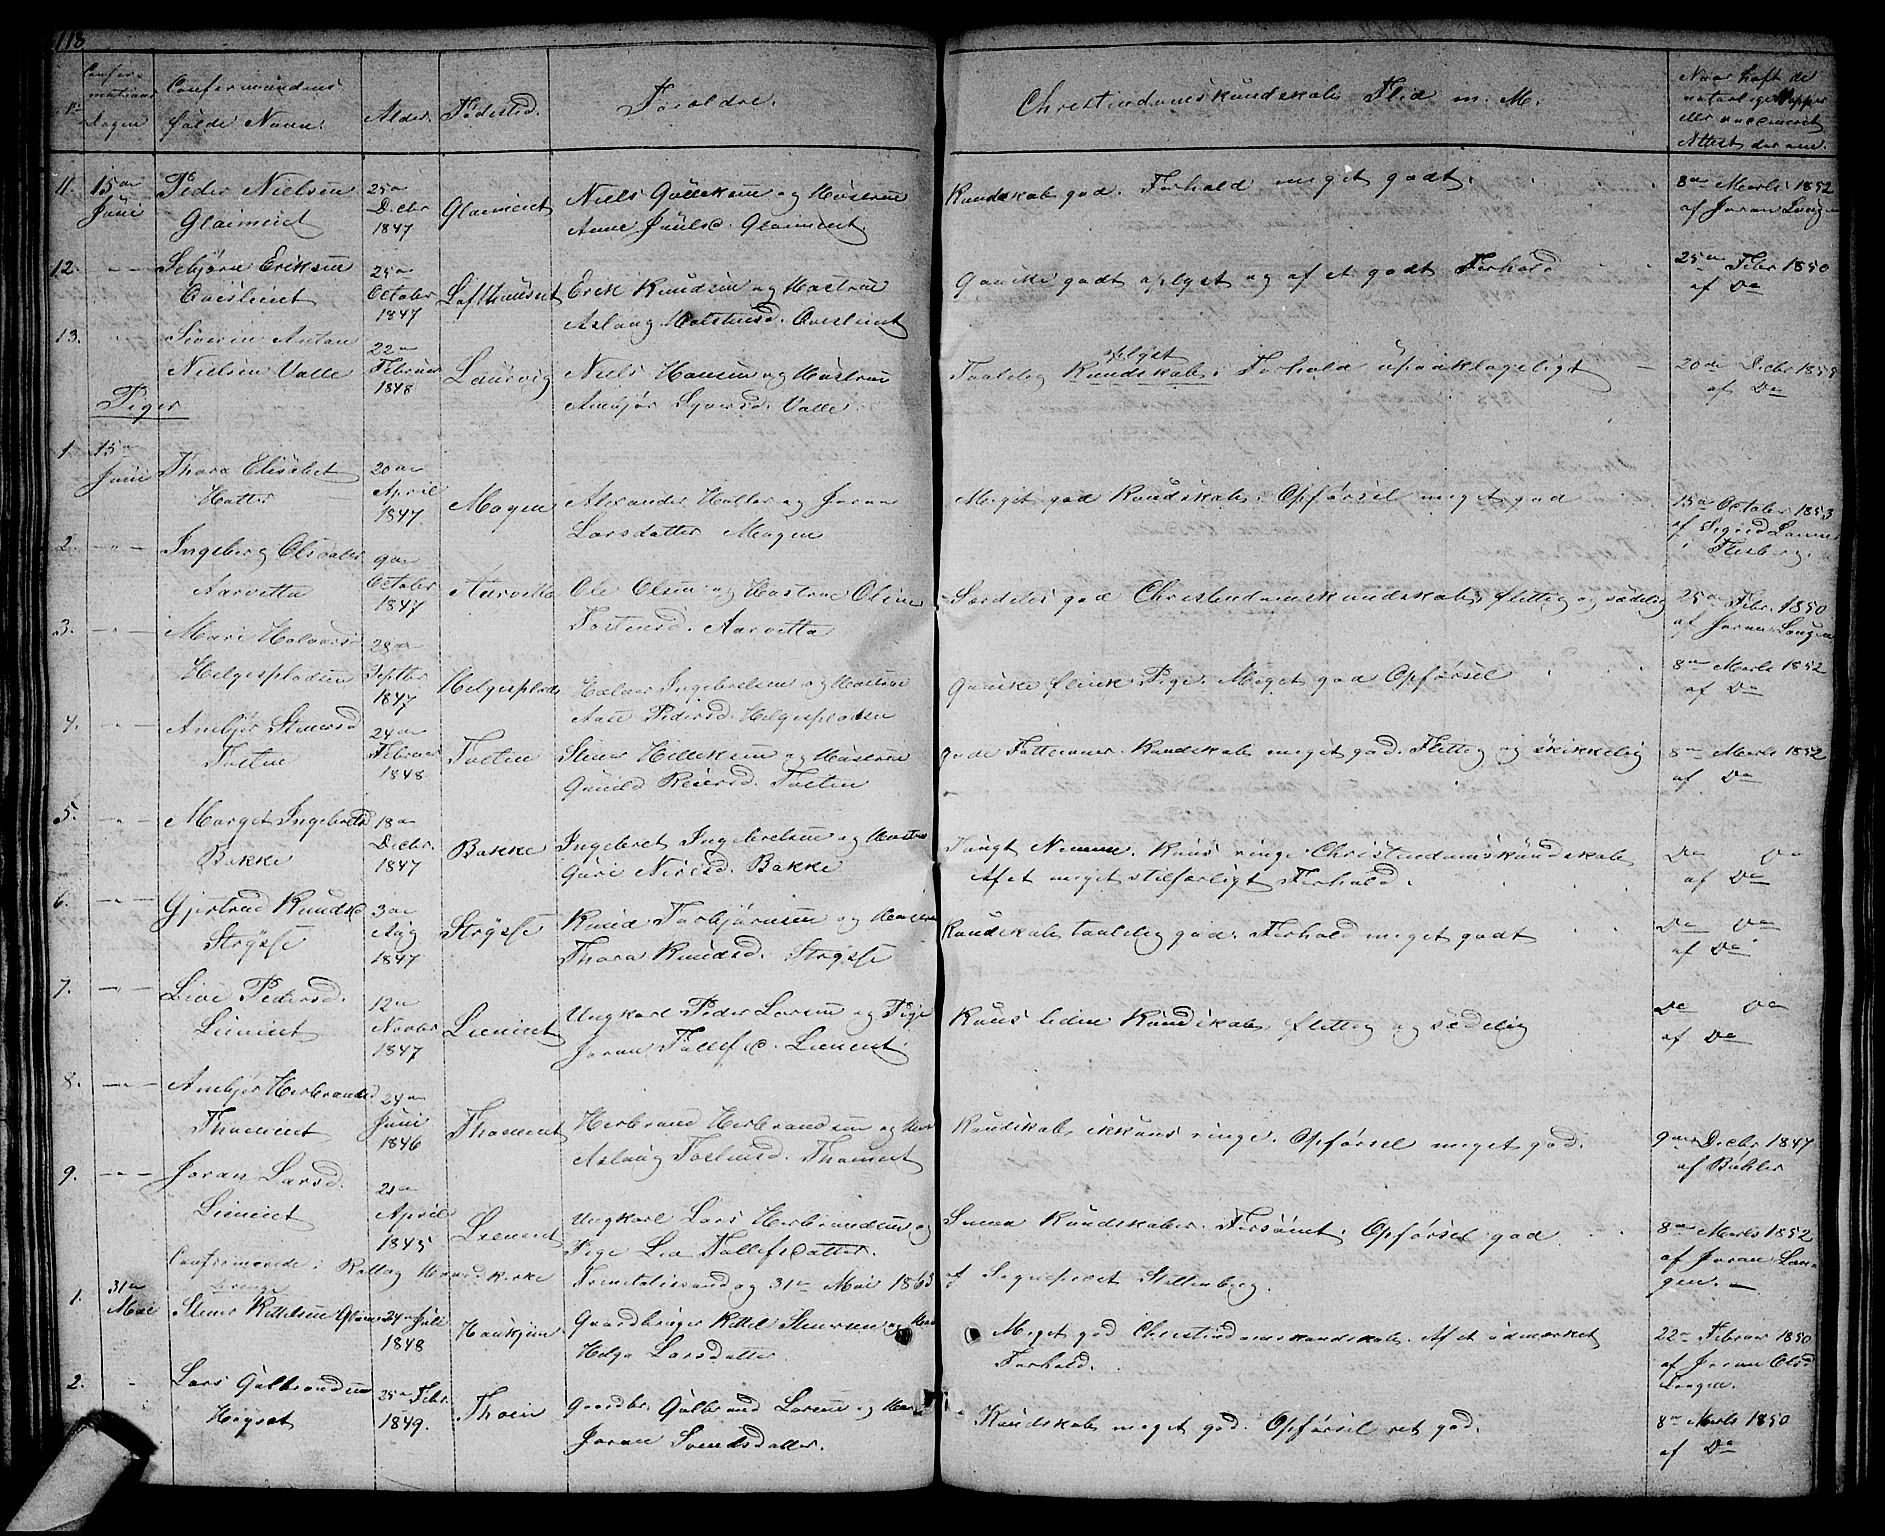 118
No
Confirmations Dagen
Confirmandens fulde Navn.
Alder.
Fødested.
Forældre.
Christendomskundskab, Flid m. M.
Naar haft de naturlige Kopper eller vaccineret Attest derom.
11. 15de Juni
Peder Nielsen
25de Decbr 1847
Niels Gulleksen og Hustrue
Anne Juulsd.
Kundskab god. Forhold meget godt.
8de Marts 1852
af Joran Langen
12.
Erik
25de October 1847
Lofthuusei
Erik Knudsen og Hustrue
Aslaug
Ganske godt oplyst og af et godt Forhold
25de Febr 1850
af Do
13.
Severin Anton
Nielsen Valle
22de Februar 1848
Laurvig
Niels Hansen og Hustrue
Anbjør Syversd. Valle.
Taalelig Kundskab oplyst. Forhold upaaklageligt
20de Decbr
af Do
Piger
1. 15de Juni
Thora Elisabet
20de April 1847
Mogen
Alexander og Joran
Larsdatter Mogen
Meget god Kundskab. Opførsel meget god
15de October 1853
af
Flesberg.
2.
Ingeborg Olsdatter
Aarvetta
9de October 1847
Aarvetta
Ole Olsen og Hustrue Oline
Tostensd. Aarvetta
Særdeles god Christendomskundskab, flittig og sædelig
25de Febr. 1850
af Joran Langen
3.
Mari Halvorsd
Helgespladsen
28de Septbr 1847
Helgesplads
Halvor Ingebretsen og Hustrue
Aase Pedersd. Helgespladsen
Ganske flink Pige. Meget god Opførsel
8de Marts 1852
af Do
4.
Anbjør Stenersd
Toften
24de Februar 1848
Toften
Stener Kittelsen og Hustrue
Gunild Reiersd. Toften
gode Fatteevner. Kundskab meget god. Flittig og skikkelig
8de Marts 1852
af Do
5.
Marget Ingebretsd
Bakke
18de Decbr. 1847
Bakke
Ingebret Ingebretsen og Hustrue
Guri Nirisd. Bakke
Tungt Nemme. Kuns ringe Christendomskundskab,
Af et meget stilfærdigt Forhold.
Do Do
af Do
6.
Gjertrud Knudsd
Strysse
3de Aug 1847
Strysse
Knud Torbjørnsen og Hustrue
Thora Knudsd. Strysse
Kundskab taalelig god. Forhold meget godt
Do Do
af Do
7.
Live Pedersd.
12te Novbr 1847
Ungkarl Peder Larsen og Pige
Joran Tollefsd.
Kuns liden Kundskab, flittig og sædelig
Do Do
af Do
8.
Anbjør Herbrandsd
24de Juni 1846
Herbrand Herbrandsen og Hust
Aslaug Tostensd.
Kundskab, ikkuns ringe. Opførsel meget god.
9de Decbr 1847
af Bühler
9.
Joran Larsd.
21de April 1845
Ungkarl Lars Herbrandsen og
Pige Lia Tollefsdatter.
Smaa Kundskaber. Forsømt. Opførsel god
8de Marts 1852
af Joran Langen.
Confirmerede i Rollag Hovedkirke Trinitatissøndag 31te Mai 1863 af Sognepræst Stillenberg.
1. 31te Mai
Stener Kittelsen
24de Juli 1848
Gaardbruger Kittel Stenersen og Hust
Helga Larsdatter
Meget god Christendomskundskab. Af et udmærket
Forhold.
22de Februar 1850
af Joran Olsd
Langen.
2.
Lars Gulbrandsen
25de Febr. 1849.
Thoen
Gaardbr. Gulbrand Larsen og Hust
Joran Svendsdatter.
Kundskab, meget god. Opførsel ret god.
8de Marts 1850
af Do